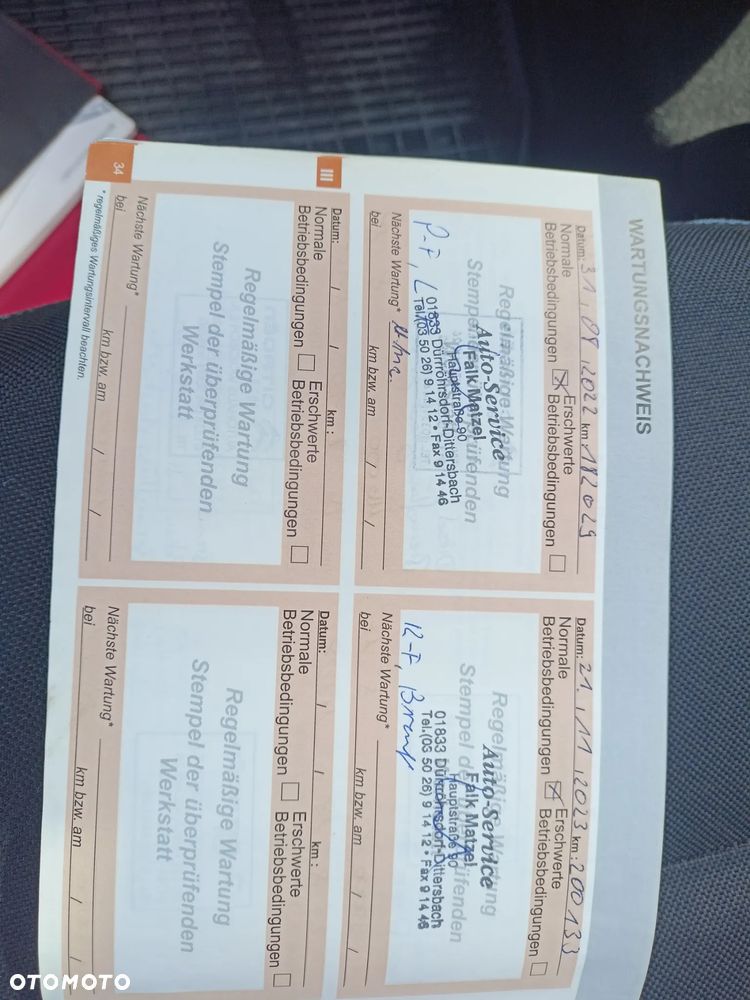 WARTUNGSNACHWEIS
Datum: 31.08.2022 km: 182029
Normale Betriebsbedingungen
Erschwerte Betriebsbedingungen
Regelmäßige Wartung
Stempel der überprüfenden
Auto-Service
Falk Matzel
Hauptstraße 90
01833 Dürrröhrsdorf-Dittersbach
Tel. (03 50 26) 9 14 12 • Fax 9 14 46
P-F, L
Nächste Wartung*
bei km bzw. am / /
Datum: 21.11.2023 km: 200133
Normale Betriebsbedingungen
Erschwerte Betriebsbedingungen
Regelmäßige Wartung
Stempel der überprüfenden
Auto-Service
Falk Matzel
Hauptstraße 90
01833 Dürrröhrsdorf-Dittersbach
Tel. (03 50 26) 9 14 12 • Fax 9 14 46
Nächste Wartung*
bei km bzw. am / /
III
Datum: / / km:
Normale Betriebsbedingungen
Erschwerte Betriebsbedingungen
Regelmäßige Wartung
Stempel der überprüfenden
Werkstatt
Nächste Wartung*
bei km bzw. am / /
Datum: / / km:
Normale Betriebsbedingungen
Erschwerte Betriebsbedingungen
Regelmäßige Wartung
Stempel der überprüfenden
Werkstatt
Nächste Wartung*
bei km bzw. am / /
* regelmäßiges Wartungsintervall beachten.
34
OTOMOTO